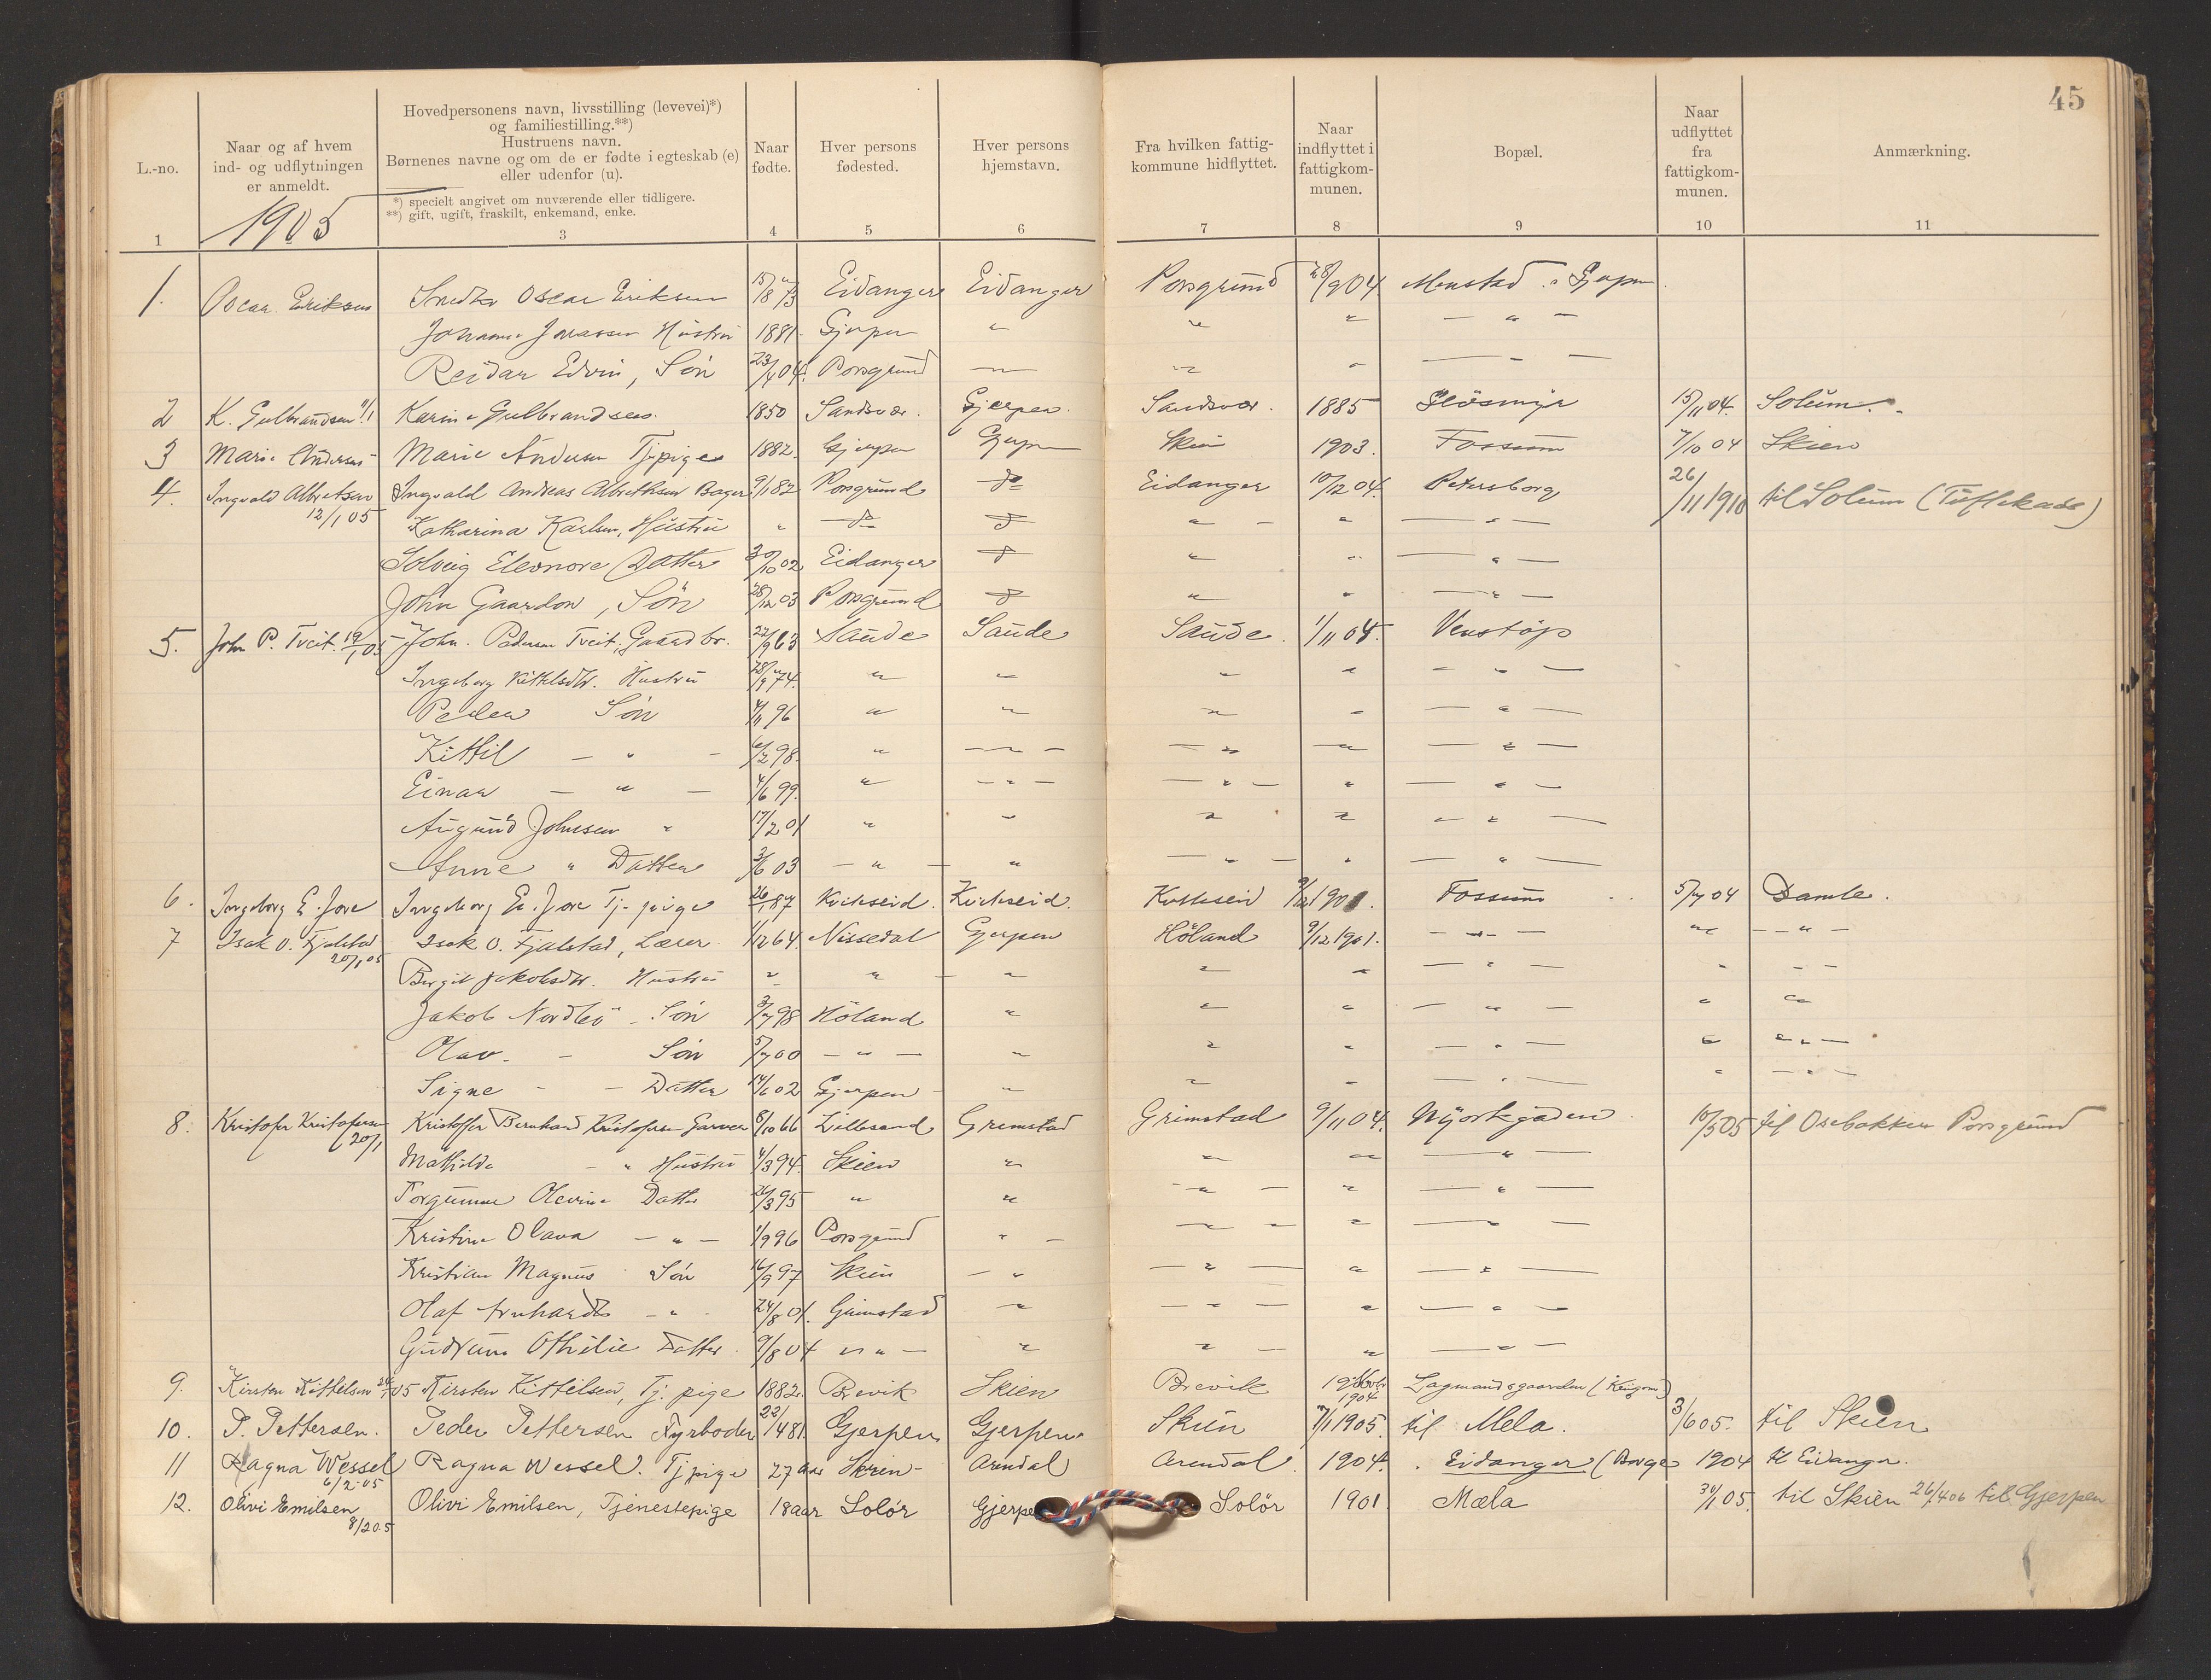 45
L.-no.
Naar og af hvem
ind- og udflytningen
er anmeldt.
Hovedpersonens navn, livsstilling (levevei)*)
og familiestilling.**)
Hustruens navn.
Børnenes navne og om de er fødte i egteskab (e)
eller udenfor (u).
*) specielt angivet om nuværende eller tidligere.
**) gift, ugift, fraskilt, enkemand, enke.
Naar
fødte.
Hver persons
fødested.
Hver persons
hjemstavn.
Fra hvilken fattig-
kommune hidflyttet.
Naar
indflyttet i
fattigkom-
munen.
Bopæl.
Naar
udflyttet
fra
fattigkom-
munen.
Anmærkning.
1905
1 3 4 5 6 7 8 9 10 11
1. Oscar Eriksen Oscar Eriksen Eidanger Eidanger Porsgrund 28/9 04 Menstad
Hustru 1881 Gjerpen " " " — " —
Reidar Edvin, Søn 23/4 04. Porsgrund
2 K. Gulbrandsen Karine Gulbrandsen 1850 Sandsvær. Gjerpen. Sandsvær. 1885 15/11 04. Solum.
3 Marie Andersen Marie Andersen Tj.pige 1882. Gjerpen Gjerpen Skien 1903. Fossum 7/10 04 Skien
4. Ingvald Albretsen 12/1 05 Ingvald Andreas Albrethsen Bager 9/1 82 Porsgrund do Eidanger 10/12 04. Petersborg 26/11 1910 til Solum
Katharina Karlsen, Hustru " do do " " — " —
Solveig Eleonore Datter 30/10 02 Eidanger do " " — " —
John Gaardon, Søn 28/12 03 Porsgrund do " " — " —
5. John P. Tveit. 19/1 05 John Pedersen Tveit, Gaardbr. 22/9 63 Saude Saude Saude 1/11 04. Venstøp
Ingeborg Kittelsdtr. Hustru 28/9 74. " " " " — " —
Peder Søn 4/11 96 " " " " — " —
Kittil — " — 6/2 98. " — " — — " " — " —
Einar — " — 4/6 99. " — " — — " — " — " —
Augund Johnsen " 17/2 01 " " " " — " —
Anne " Datter 3/6 03 — " — " — " — " — " —
6. Ingeborg E. Jore Ingeborg E. Jore Tj.pige 26/1 87 Kviteseid. Kviteseid. Fossum 5/7 04 Bamle.
7 Isak O. Fjalstad 20/1 05 Isak O. Fjalstad, Lærer 1/12 64. Nissedal Gjerpen Høland 9/12 1901. — " — " — " —
Birgit Jakobsdtr. Hustru " " " " " — " — " — —
Jakob Nordbø — Søn 3/7 98 Høland " " " — " — " "
Olav. — Søn 5/7 00 — " — " " " — " — " — " —
Signe — — Datter 14/6 02 Gjerpen " " " — " — " — " —
8. Kristofer Kristofersen 20/1 Kristoffer Bernhard Kristofersen Garver 8/10 66 Lillesand Grimstad Grimstad 9/11 04. Nyorkgaden 10/5 05 til Osebakken Porsgrund
Mathilde — " Hustru 4/3 94. Skien " " " — " —
Olevine Datter 26/3 95 " " — " — " — " —
Kristine Olava — " — 1/9 96 Porsgrund " — — " — " — " —
Kristian Magnus Søn 16/9 97 Skien — " — " — " — " —
Olaf — " 24/8 01. Grimstad " — " — " — " —
Gudrun Othilie Datter 9/8 04 " " — " " — " — " —
9. Kirsten Kittilsen Kirsten Kittilsen, Tj. pige 1882. Brevik Skien Brevik 1904 Lagmandsgaarden
10. P. Pettersen. Peder Pettersen Fyrbøder 22/1 481. Gjerpen Gjerpen Skien 7/1 1905. til Mela. 3/6 05. til Skien
11 Ragna Wessel 6/2-05 Ragna Wessel. Tj.pige 27 aar Skien Arendal Arendal 1904. Eidanger (Borge 1904 til Eidanger.
12. Olivi Emilsen 8/2 05 Olivi Emilsen, Tjenestepige 18 aar Solør Gjerpen Solør 1901 Mæla 30/1 05. til Skien 26/4 06 til Gjerpen